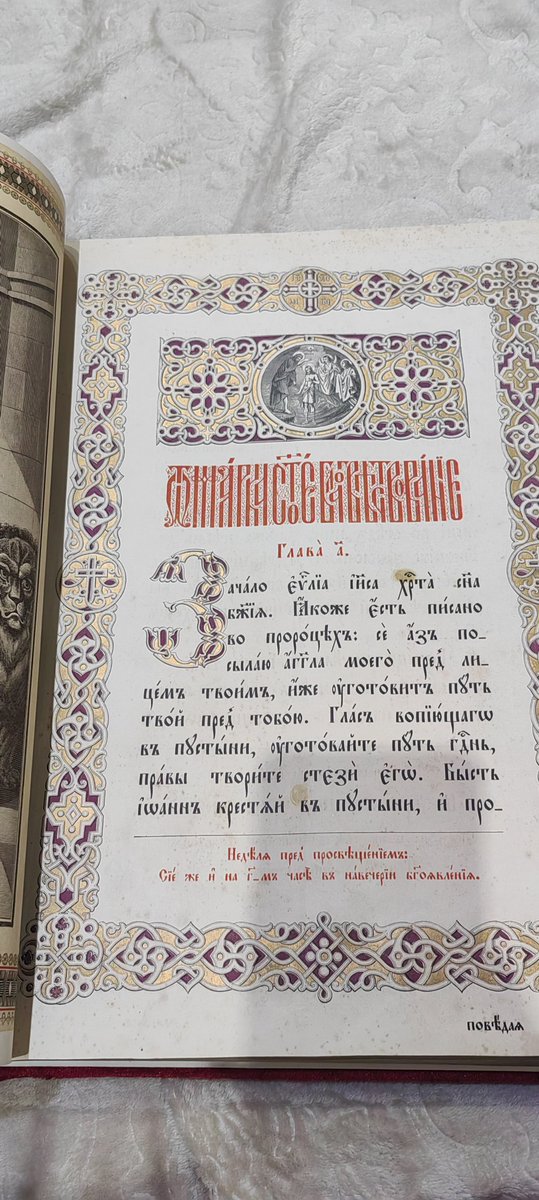 Ѿ МА́РКА СТ҃О́Е БЛАГОВѢСТВОВА́НІЕ
Глава̀ а҃.
Зача́ло є҆ѵⷢ҇лїа і҆и҃са хрⷭ҇та̀ сн҃а
бж҃їѧ. Ꙗ҆́коже є҆́сть пи́сано
во проро́цѣхъ: сѐ а҆́зъ по-
сыла́ю а҆́гг҃ла моего̀ пред̾ ли-
це́мъ твои́мъ, и҆́же ᲂу҆гото́витъ пꙋ́ть
тво́й пред̾ тобо́ю. Гла́съ вопїю́щагѡ
въ пꙋсты́ни, ᲂу҆гото́вайте пꙋ́ть гдⷭ҇нь,
пра́вы твори́те стєзѝ є҆гѡ̀. Бы́сть
і҆ѡа́ннъ крестѧ́й въ пꙋсты́ни, и҆ про-
Недѣ́лѧ пред̾ просвѣще́нїемъ:
Сїе́ же и҆ на г҃-мъ часѣ̀ въ наве́черїи бг҃оѧвле́нїѧ.
повѣ́даѧ